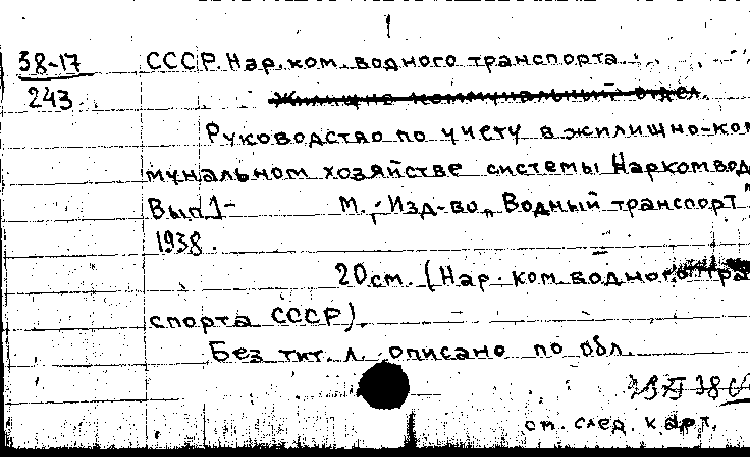 38-17 СССР. Нар. ком. водного транспорта.
243 Жилищно коммунальный отдел.
Руководство по учету в жилищно-ком
мунальном хозяйстве системы Наркомвод
Вып. 1- М., Изд-во „Водный транспорт"
1938.
20см. (Нар. ком. водного тра
спорта СССР).
Без тит. л. описано по обл.
см. след. карт.